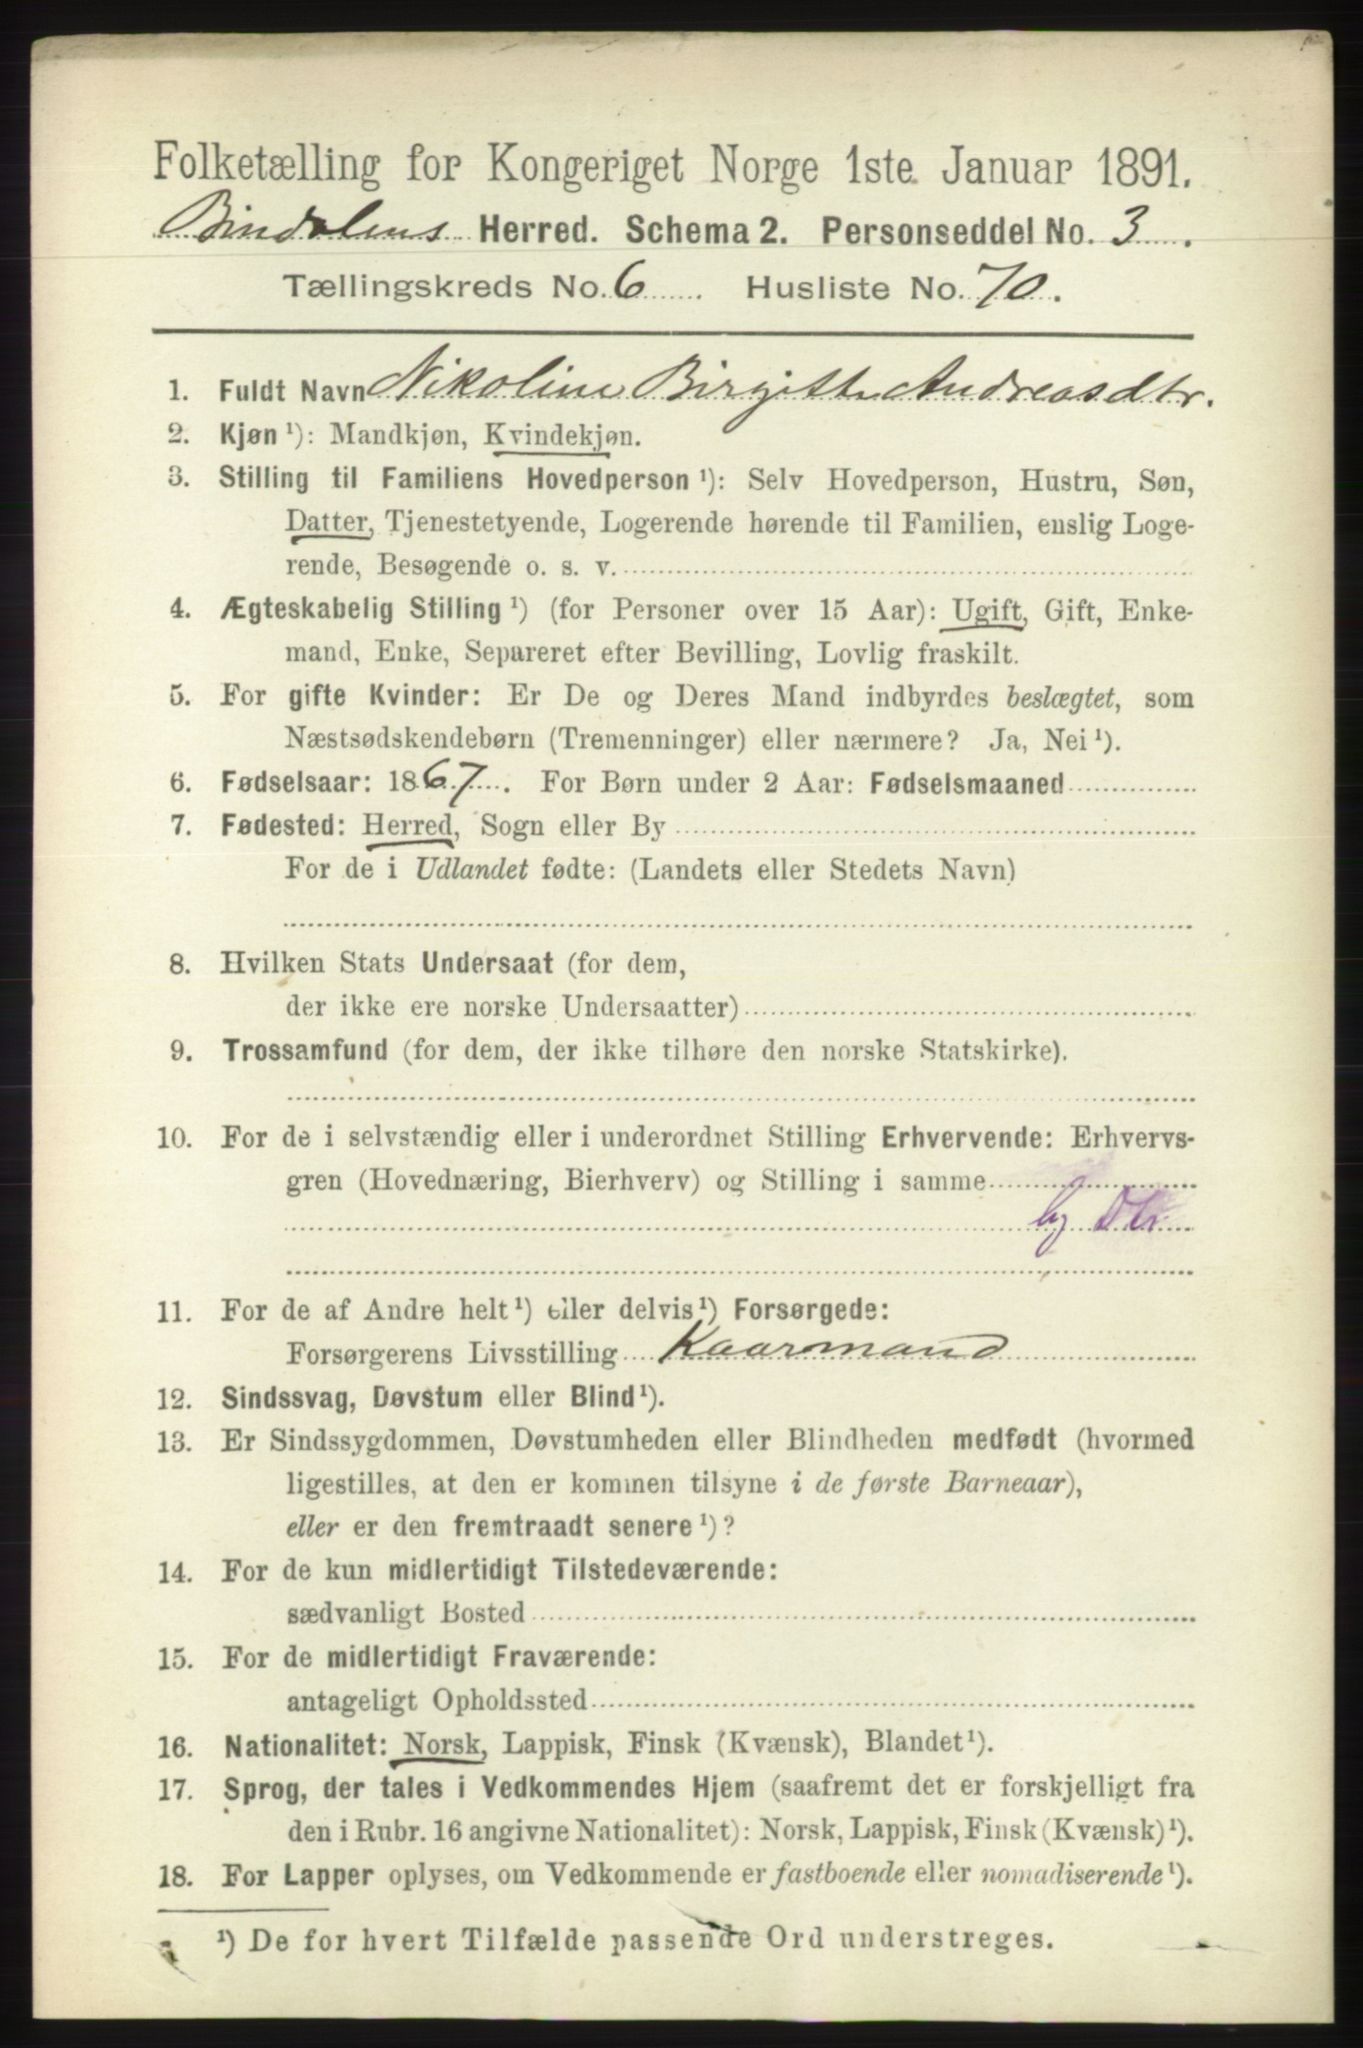 Folketælling for Kongeriget Norge 1ste Januar 1891.
Bindalens Herred. Schema 2. Personseddel No. 3.
Tællingskreds No. 6 Husliste No. 70.
1. Fuldt Navn Nikoline Birgitte Andreasdtr.
2. Kjøn ¹): Mandkjøn, Kvindekjøn.
3. Stilling til Familiens Hovedperson ¹): Selv Hovedperson, Hustru, Søn,
Datter, Tjenestetyende, Logerende hørende til Familien, enslig Loge-
rende, Besøgende o. s. v.
4. Ægteskabelig Stilling ¹) (for Personer over 15 Aar): Ugift, Gift, Enke-
mand, Enke, Separeret efter Bevilling, Lovlig fraskilt.
5. For gifte Kvinder: Er De og Deres Mand indbyrdes beslægtet, som
Næstsødskendebørn (Tremenninger) eller nærmere? Ja, Nei ¹).
6. Fødselsaar: 1867. For Børn under 2 Aar: Fødselsmaaned
7. Fødested: Herred, Sogn eller By
For de i Udlandet fødte: (Landets eller Stedets Navn)
8. Hvilken Stats Undersaat (for dem,
der ikke ere norske Undersaatter)
9. Trossamfund (for dem, der ikke tilhøre den norske Statskirke).
10. For de i selvstændig eller i underordnet Stilling Erhvervende: Erhvervs-
gren (Hovednæring, Bierhverv) og Stilling i samme
Dtr
11. For de af Andre helt ¹) eller delvis ¹) Forsørgede:
Forsørgerens Livsstilling Kaarmand
12. Sindssvag, Døvstum eller Blind ¹).
13. Er Sindssygdommen, Døvstumheden eller Blindheden medfødt (hvormed
ligestilles, at den er kommen tilsyne i de første Barneaar),
eller er den fremtraadt senere ¹)?
14. For de kun midlertidigt Tilstedeværende:
sædvanligt Bosted
15. For de midlertidigt Fraværende:
antageligt Opholdssted
16. Nationalitet: Norsk, Lappisk, Finsk (Kvænsk), Blandet ¹).
17. Sprog, der tales i Vedkommendes Hjem (saafremt det er forskjelligt fra
den i Rubr. 16 angivne Nationalitet): Norsk, Lappisk, Finsk (Kvænsk) ¹).
18. For Lapper oplyses, om Vedkommende er fastboende eller nomadiserende ¹).
¹) De for hvert Tilfælde passende Ord understreges.